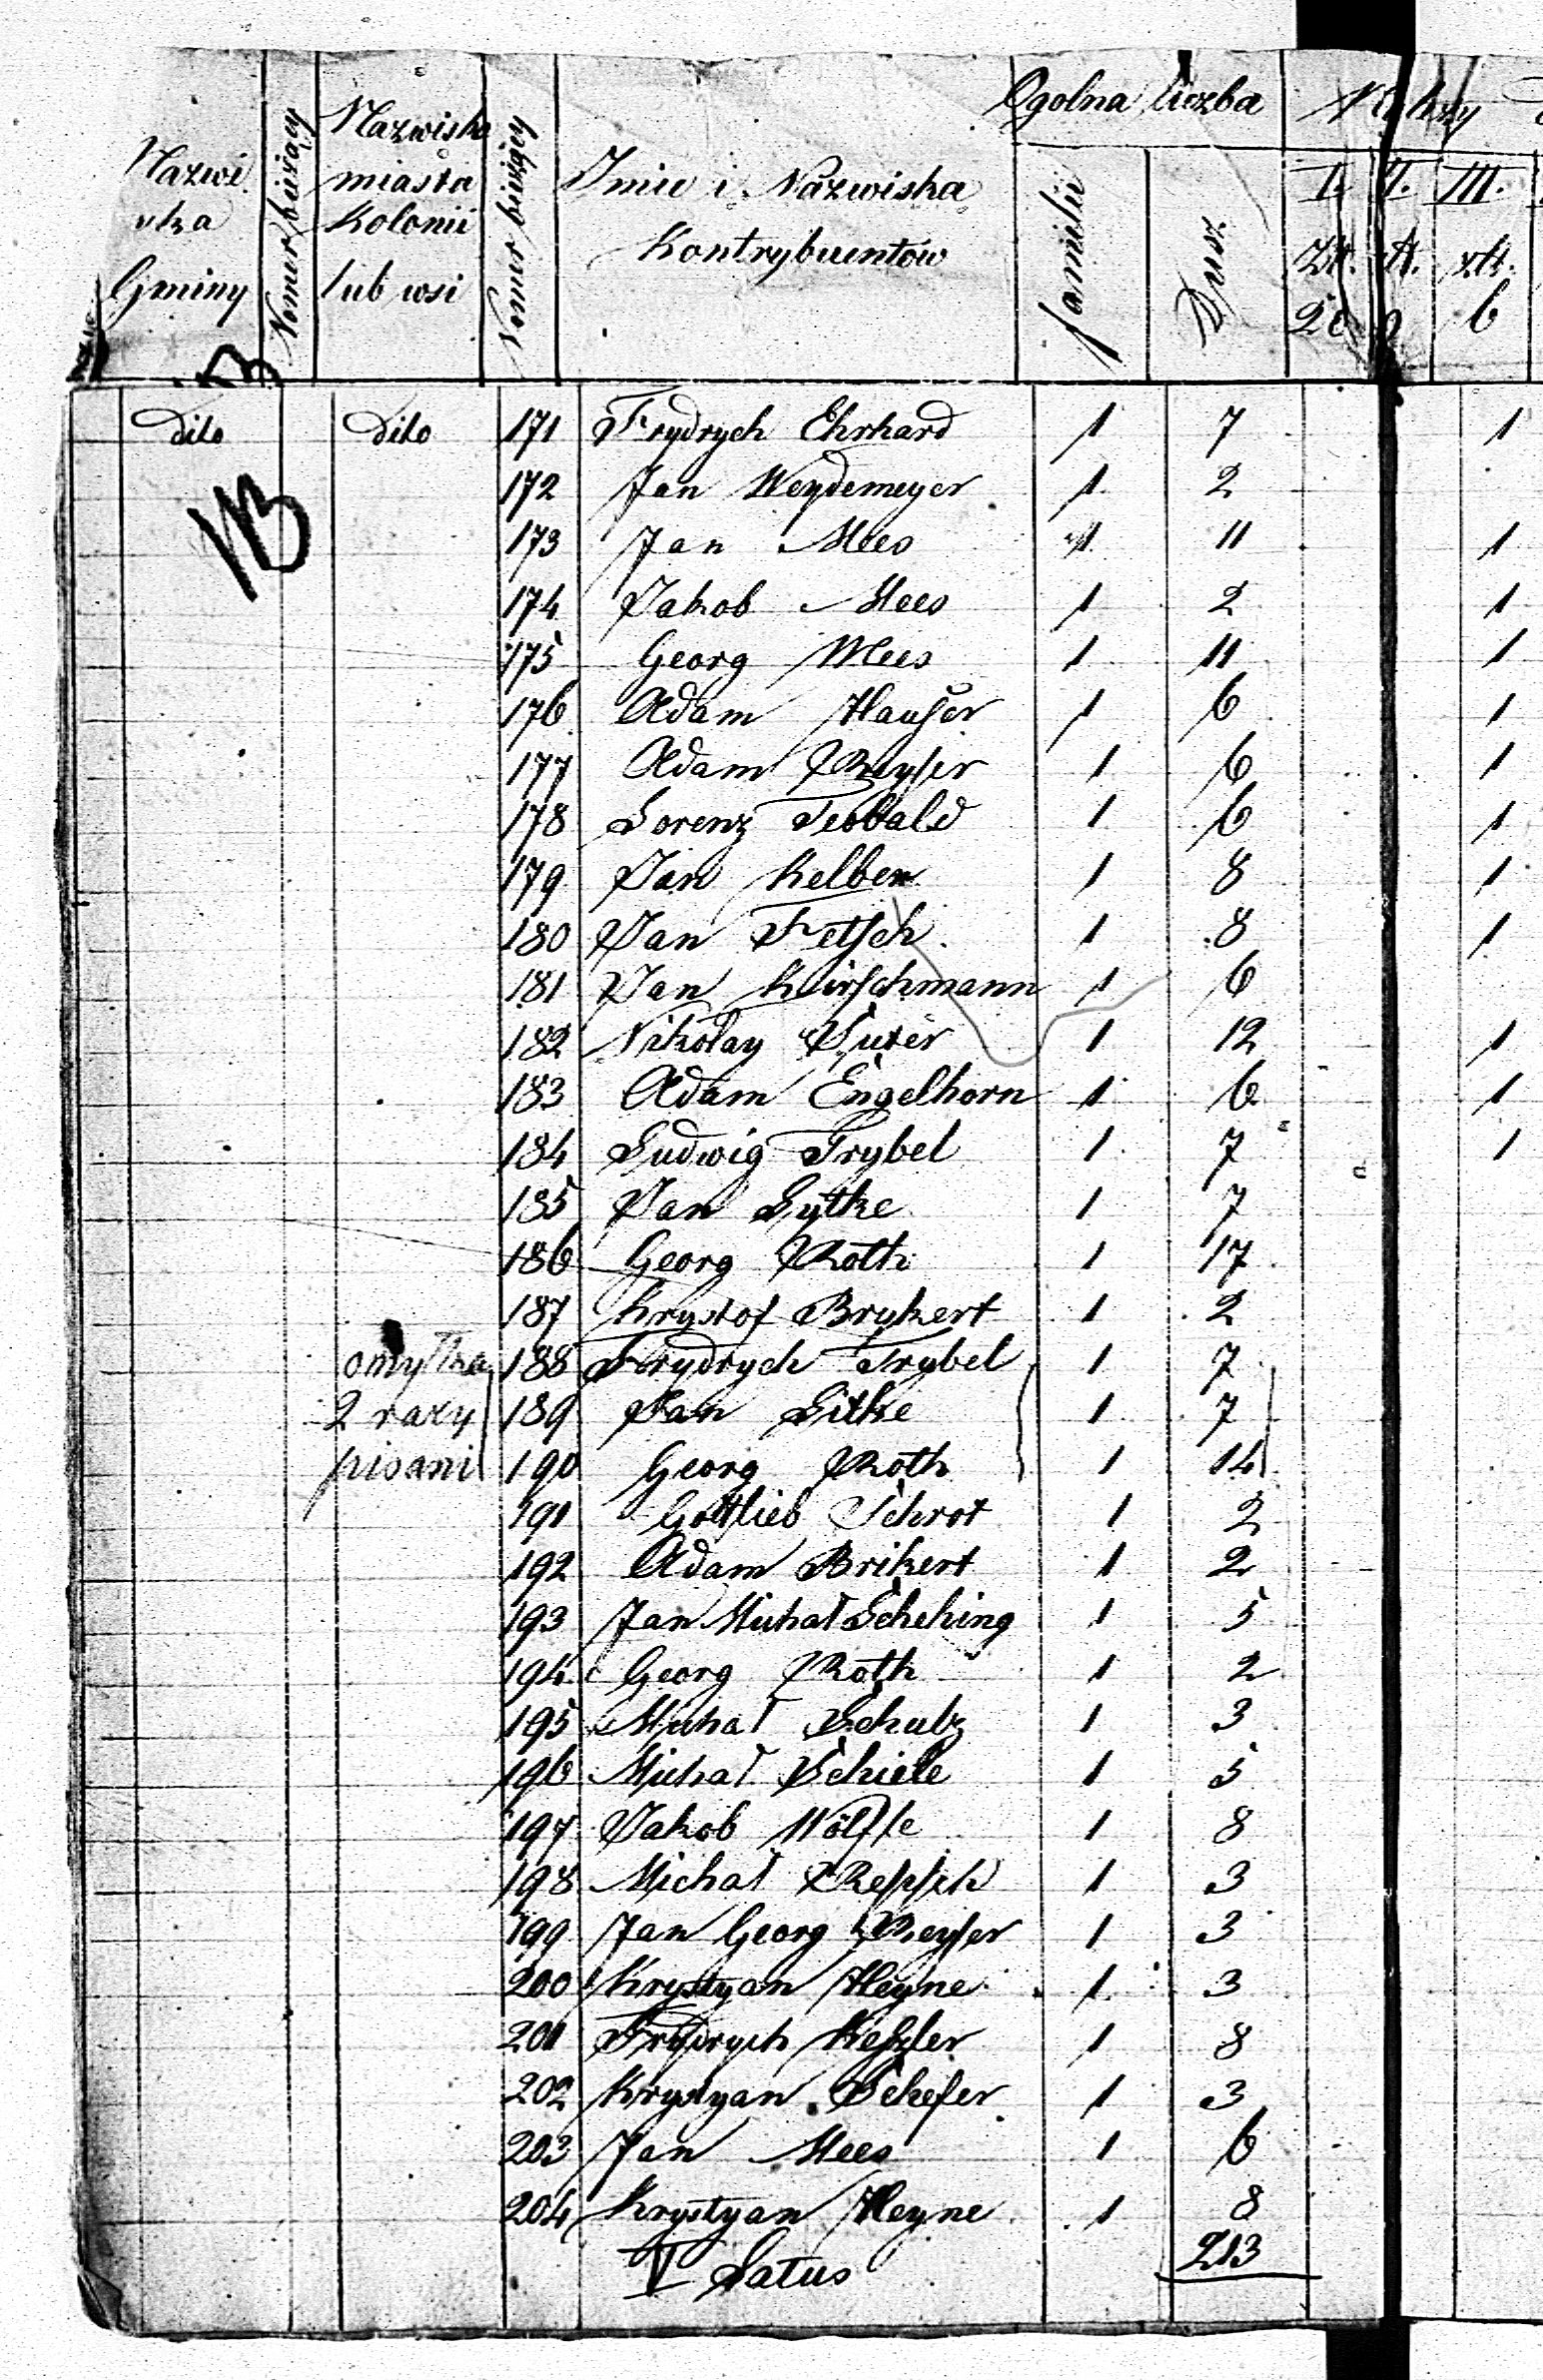 Nazwi
ska
Gminy
Nomer bieżący
Nazwiska
miasta
Kolonii
lub wsi
Nomer bieżący
Imie i Nazwiska
Kontrybuentów
Ogolna liczba
familii
Dusz
I. II. III.
Zł. zł. xłt.
20 6
dito dito 171 Frydrych Ehrhard 1 7 1
NB
172 Jan Weydemeyer 1 2
173 Jan Mees 1 11 1
174 Jakob Mees 1 2 1
175 Georg Mees 1 11 1
176 Adam Hauser 1 6 1
177 Adam Reyser 1 6 1
178 Lorenz Teobald 1 6 1
179 Jan Kelber 1 8 1
180 Jan Fetsch 1 8 1
181 Jan Kirschmann 1 6
182 Nikolay Suter 1 12 1
183 Adam Engelhorn 1 6 1
184 Ludwig Trybel 1 7 1
185 Jan Lytke 1 7
186 Georg Roth 1 17
187 Krystof Brykert 1 2
omyłka 188 Frydrych Trybel 1 7
2 razy 189 Jan Litke 1 7
pisani 190 Georg Roth 1 14
191 Gottlieb Schrot 1 2
192 Adam Brikert 1 2
193 Jan Michał Scheking 1 5
194 Georg Roth 1 2
195 Michał Schulz 1 3
196 Michał Schiele 1 5
197 Jakob Wölfle 1 8
198 Michał Repsch 1 3
199 Jan Georg Reyser 1 3
200 Krystyan Heyne 1 3
201 Frydrych Keszler 1 8
202 Krystyan Schefer 1 3
203 Jan Mees 1 6
204 Krystyan Heyne 1 8
V Latus 213